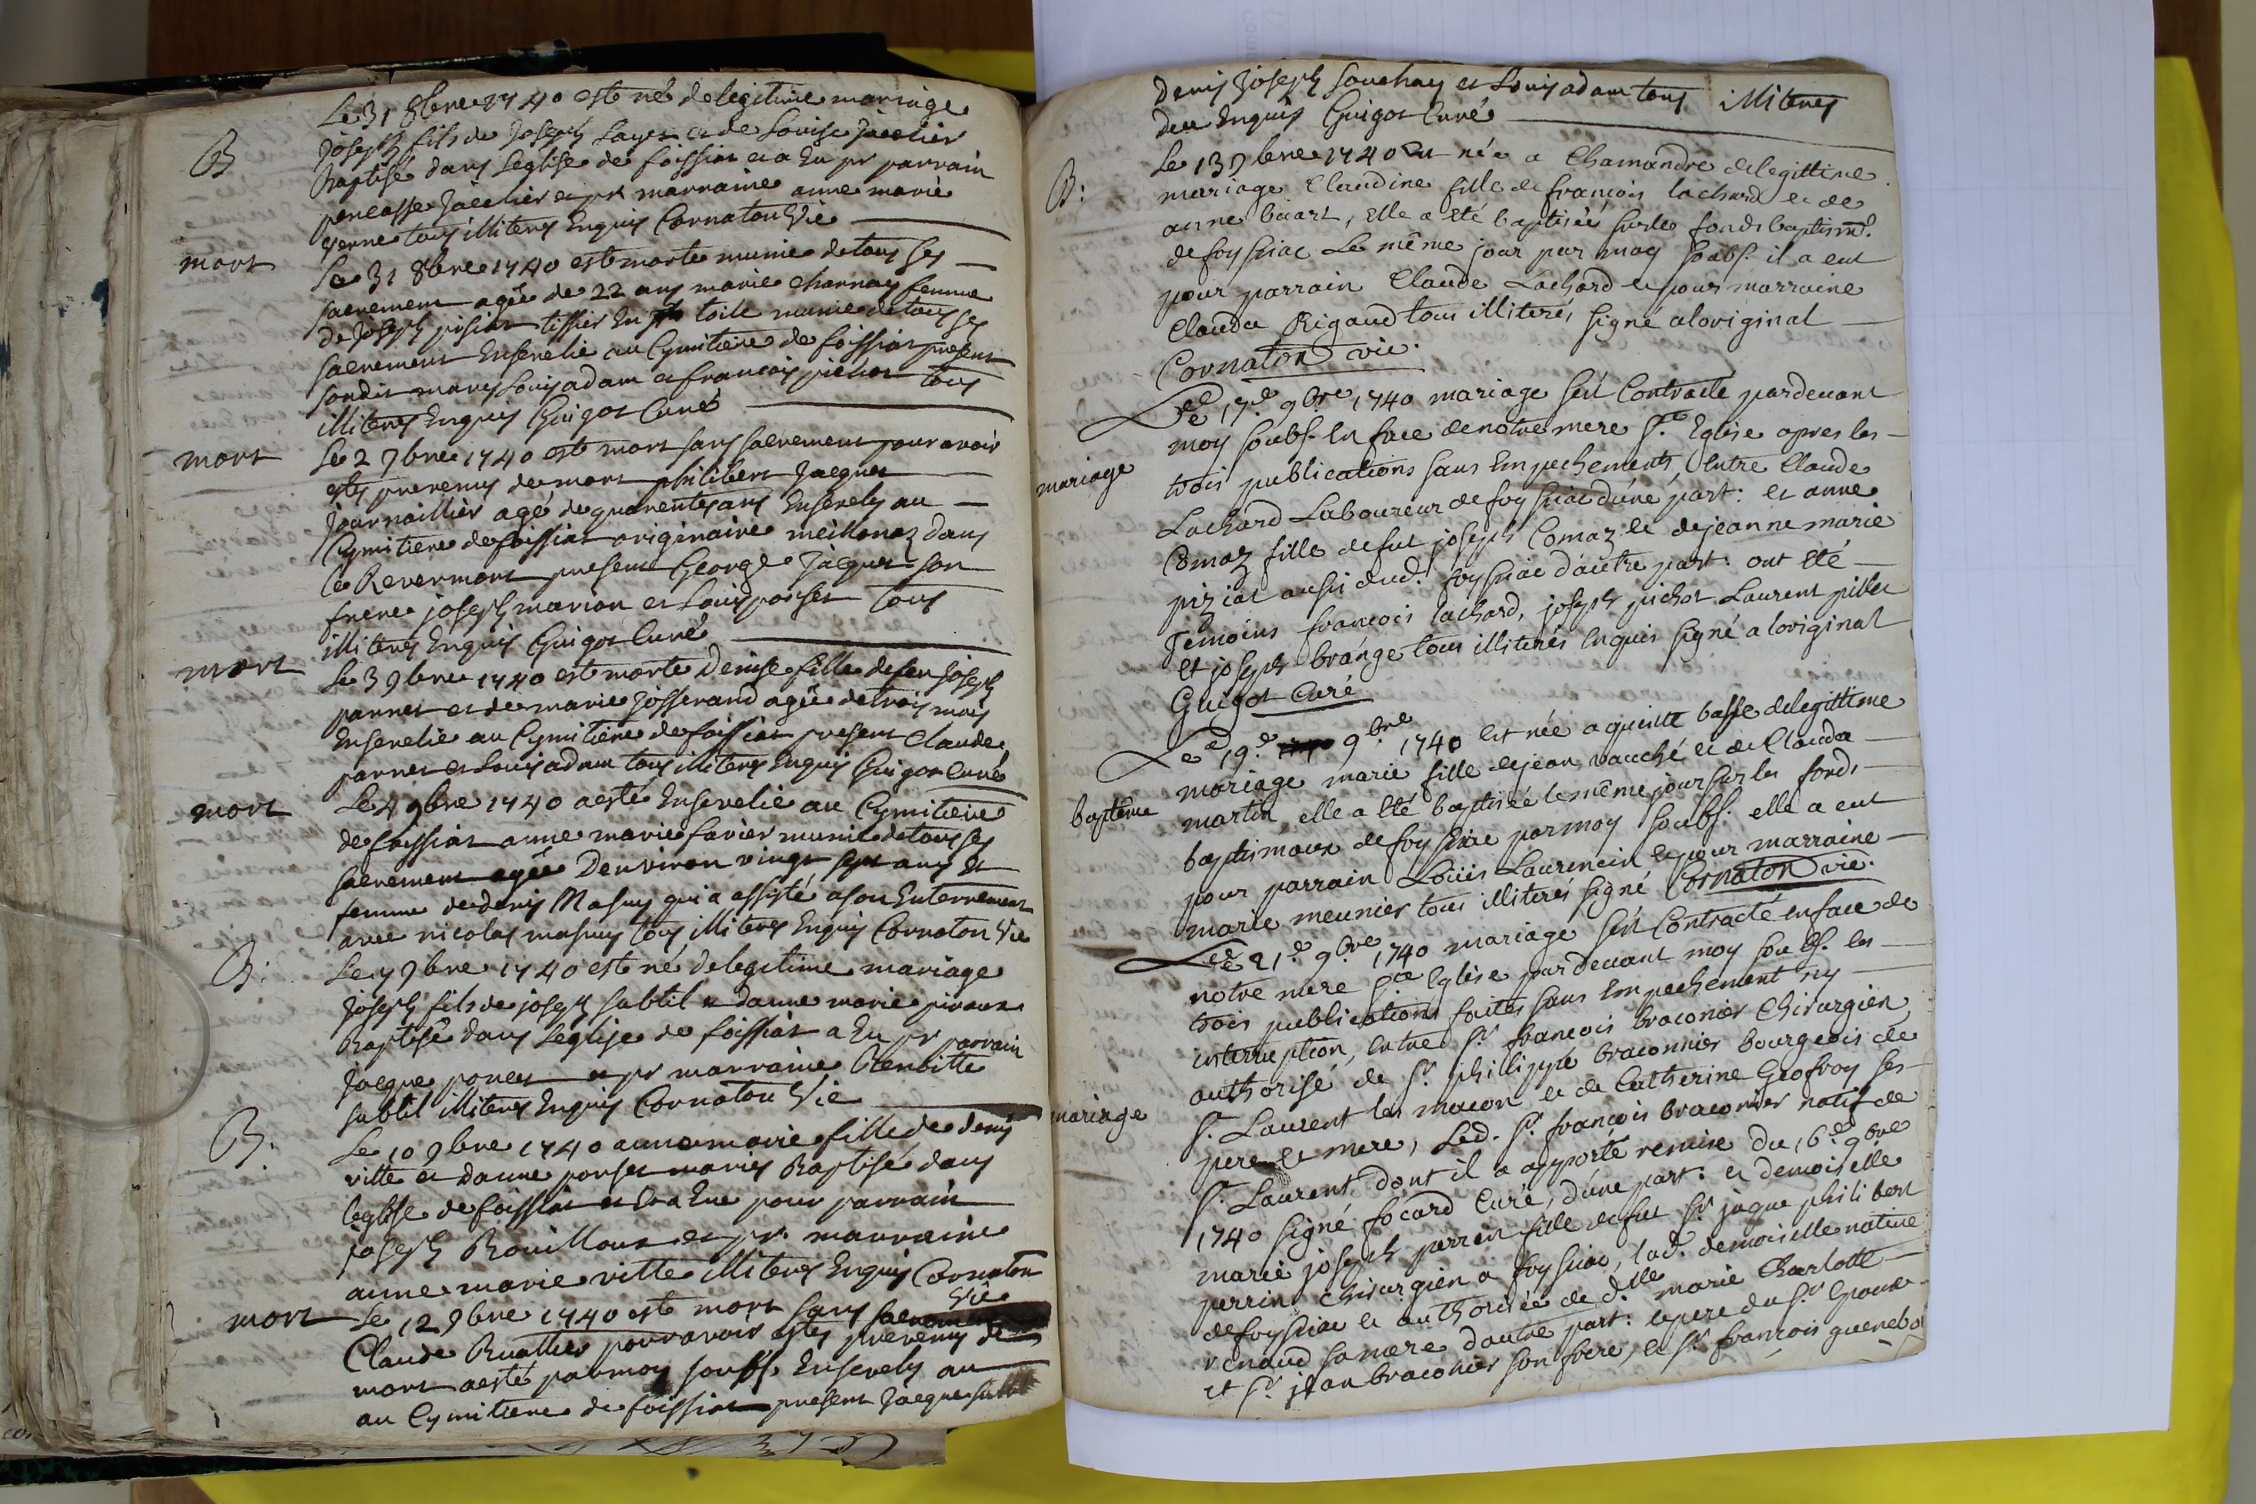 Le 31 8bre 1740 est né de legitime mariage
B
Joseph fils de Joseph Layer et de Louise Jacelier
Baptisé dans leglise de foissiat et a Eu pr parrain
poncasse Jacelier et pr marraine anne marie
yerne tous illiteres Enquis Cornaton Vie
mort
Le 31 8bre 1740 est morte munie de tous ses
sacrement agée de 22 ans marie Charnay femme
de Joseph pisiat tissier En toile munie de tous ses
sacrement Ensevelie au Cymitiere de foissiat present
sondit mary Louis adam et francois pichot tous
illiteres Enquis Guigot Curé
mort
Le 2 9bre 1740 est mort sans sacrement pour avoir
estés prevenus de mort philibert Jacquet
journaillier agé de quarentes ans Ensevely au
Cymitiere de foissiat originaire meillonaz dans
le Revermont present George Jacquet son
frere joseph marion et Louis ponset tous
illiteres Enquis Guigot Curé
mort
Le 3 9bre 1740 est morte Denise fille de feu Joseph
pannet et de marie Josserand agée de trois mois
Ensevelie au Cymitiere de foissiat present Claude
pannet et Louis adam tous illiteres Enquis Guigot Curé
mort
Le 4 9bre 1740 a esté Ensevelie au Cymitiere
de foissiat anne marie favier munie de tous ses
sacrement agée Denviron vingt sept ans Et
femme de denis Mashuy qui a assisté a son Enterrement
avec nicolas mashuy tous illiteres Enquis Cornaton Vie
B:
Le 7 9bre 1740 est né de legitime mariage
Joseph fils de joseph subtil et danne marie piroux
Baptisé dans leglise de foissiat a Eu pr parrain
Jacque poncet et pr marraine Benoitte
subtil illiteres Enquis Cornaton Vie
B:
Le 10 9bre 1740 anne marie fille de denis
vitte et danne ponset mariés Baptisé dans
leglise de foissiat et Era Eue pour parrain
joseph Rouilloux et pr. marraine
anne marie vitte illiteres Enquis Cornaton
Vie
mort
Le 12 9bre 1740 est mort sans sacrement
Claude Ruallier pour avoir estés prevenus de
mort a esté par moy soubs. Ensevely au
au Cymitiere de foissiat present Jacque
Denis Joseph Souchay et Louis adam tous illiteres
deu Enquis Guigot Curé
B:
Le 13 9bre 1740 Est née a Chamandre de legittime
mariage Claudine fille de françois lachard et de
anne buart, Elle a Eté baptisée sur les fonds baptism.
de foyssiac Le même jour par moy soubs. il a eut
pour parrain Claude Lachard et pour marraine
Clauda Rigaud tous illiterés signé a loriginal
Cornaton vie.
mariage
Le 17e 9bre 1740 mariage sest Contracte pardevant
moy soubs. En face de notre mere Ste Eglise apres les
trois publications sans Empechements, Entre Claude
Lachard Laboureur de foyssiac dune part: et anne
Comaz fille de fut joseph Comaz et de jeanne marie
piziat aussi dud. foyssiac dautre part: ont Eté
Témoins françois lachard, joseph pichot Laurent pillet
Et joseph brange tous illiterés Enquis signé a loriginal
Guigot Curé
baptême
Le 19e 9bre 1740 Est née a queitte basse de legittime
mariage marie fille de jean vauché et de Clauda
martin, elle a Eté baptisée le même jour sur les fonds
baptismaux de foyssiac par moy soubs. elle a eut
pour parrain Louis Laurencin et pour marraine
marie meunier tous illiterés signé Cornaton vie.
mariage
Le 21e 9bre 1740 mariage sest Contracté en face de
notre mere Ste Eglise pardevant moy soubs. les
trois publications faites sans Empechement ny
interruption, Entre Sr françois braconier Chirurgien
authorisé de Sr phillippe braconnier bourgeois de
St. Laurent les macon et de Catherine Geofroy ses
pere et mere, Led. Sr. françois braconier natif de
St. Laurent dont il a apporté remise du 16e 9bre
1740 signé focard Curé, dune part: et demoiselle
marie joseph perrin fille de fut Sr jaque philibert
perrin Chirurgien a foyssiac, lad. demoiselle native
de foyssiac et authorisée de dlle marie Charlotte
renaud sa mere dautre part: le pere du Sr Epoux
et Sr jean braconier son frere, et Sr francois